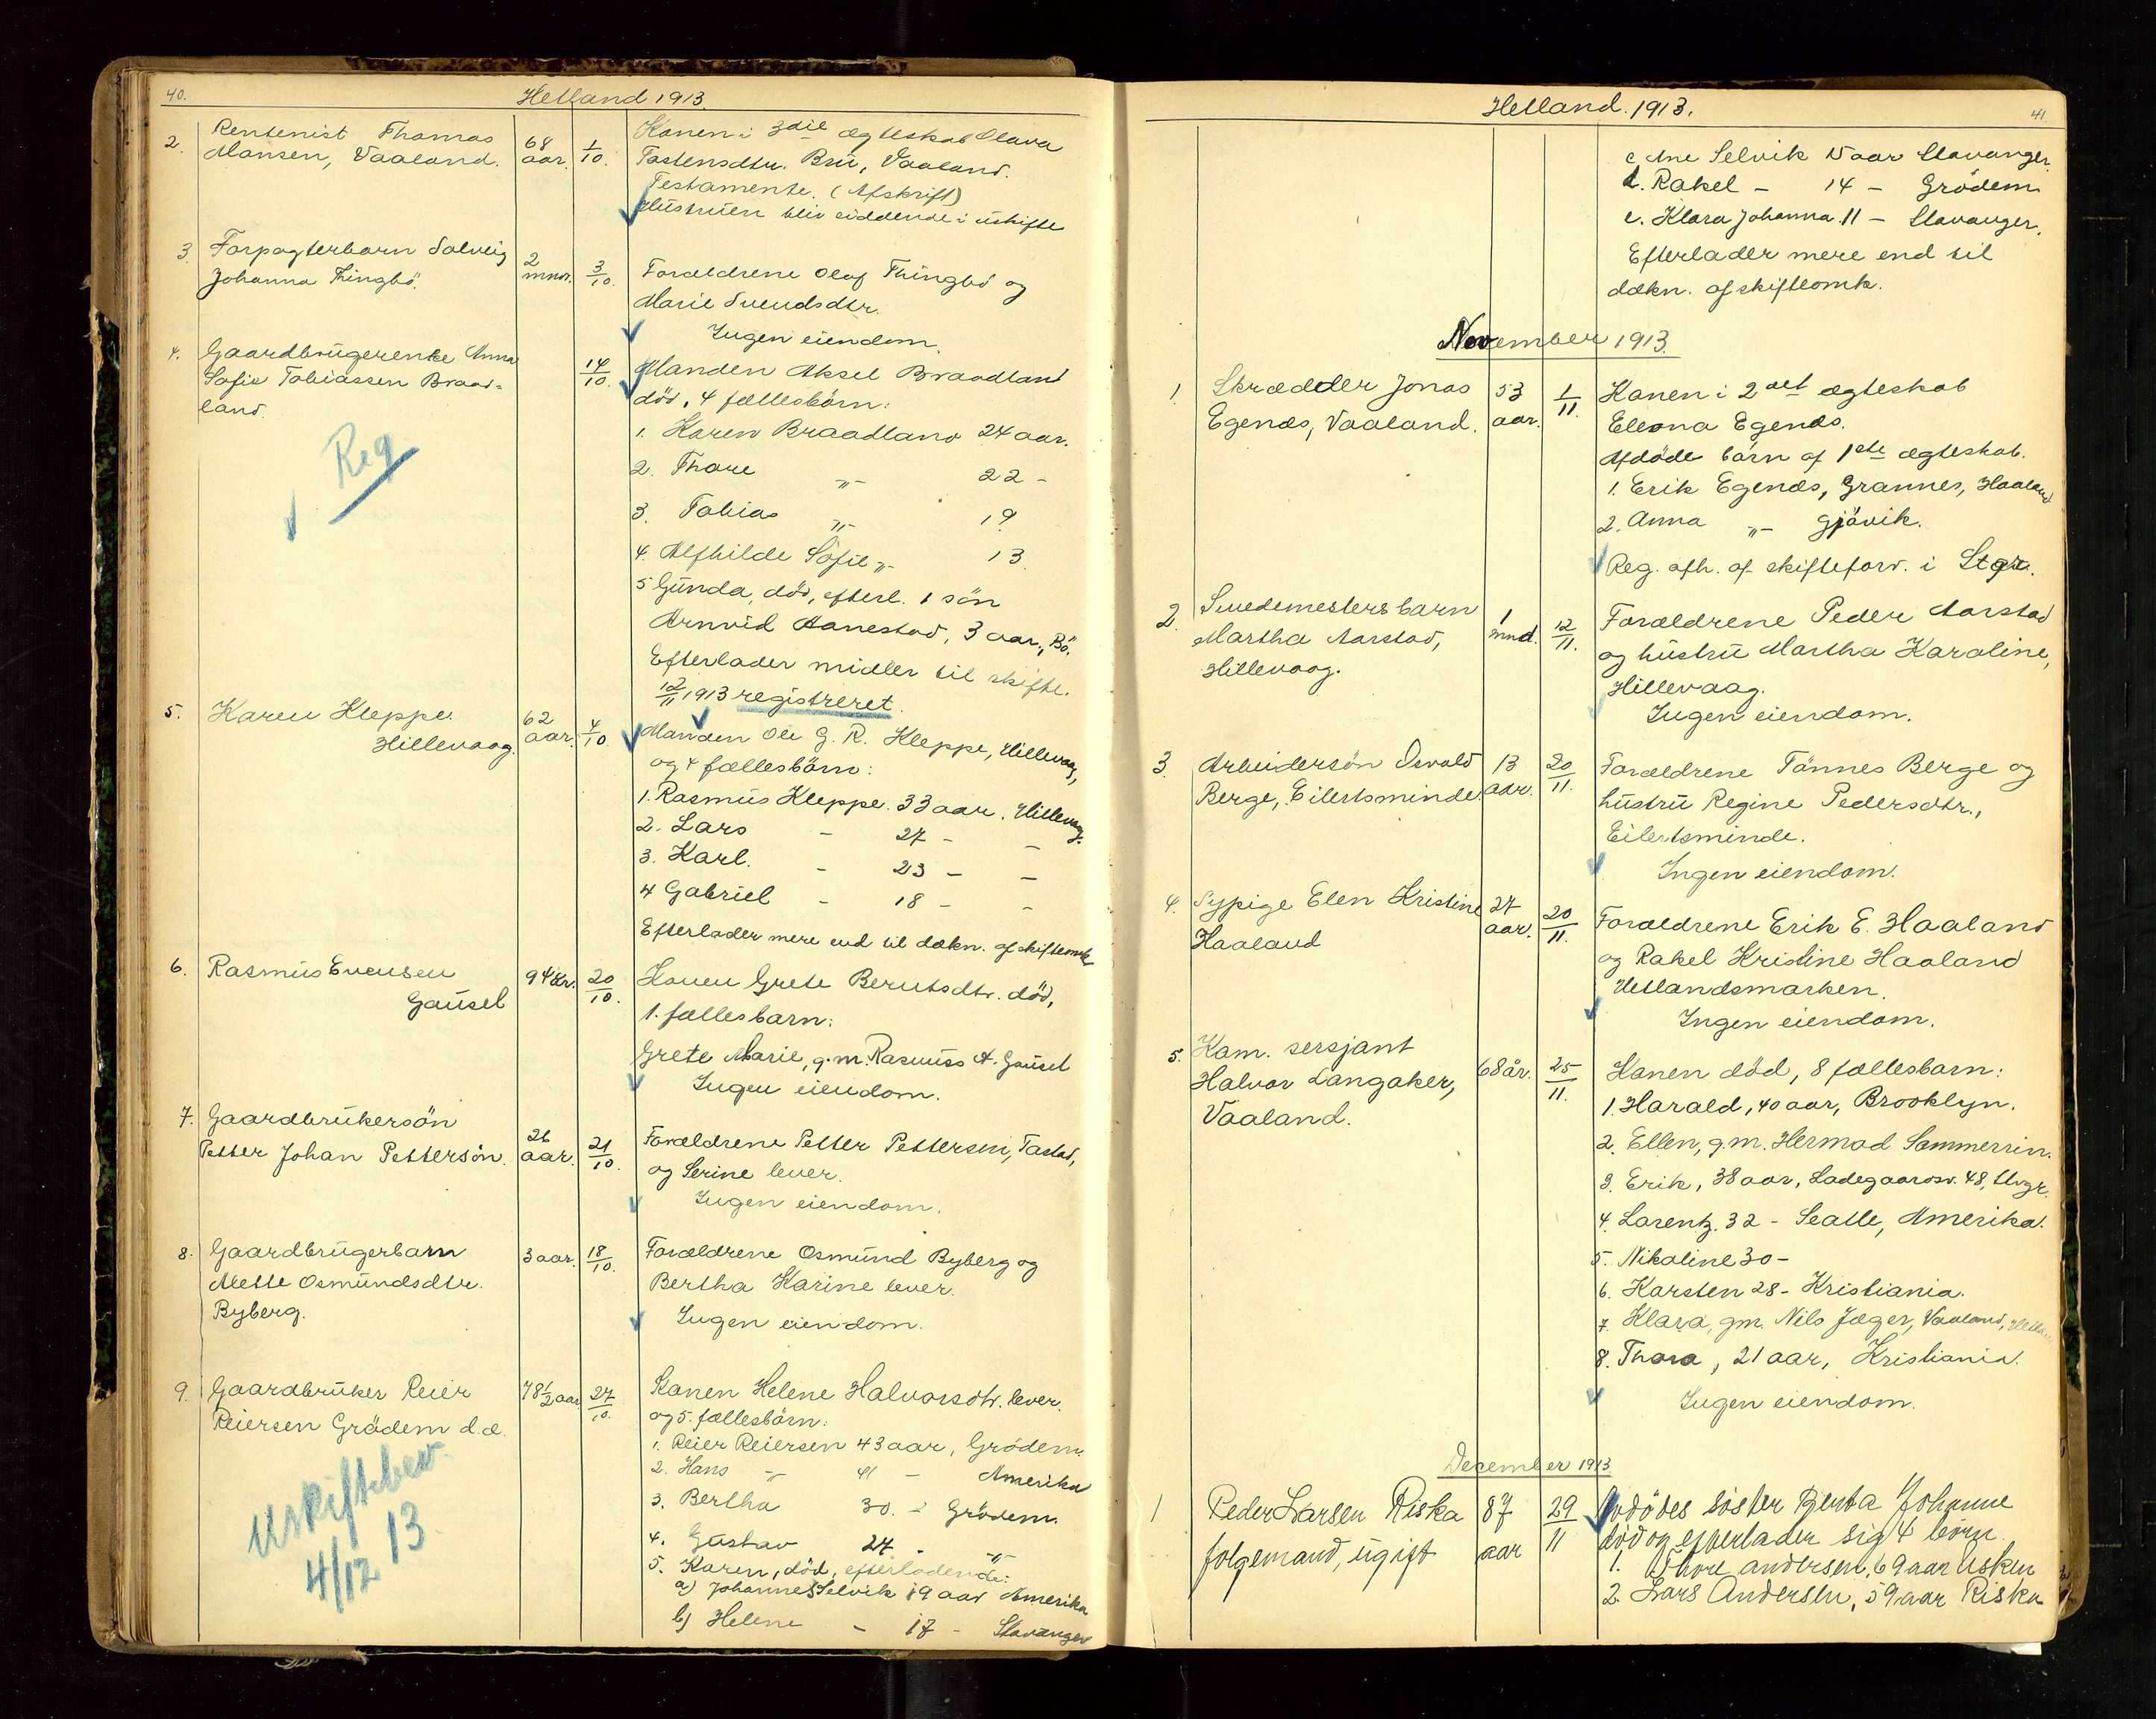 40.
Hetland 1913.
2. Rentenist Thomas
Mansen, Vaaland.
68
aar.
1/10.
Konen i 3die ægteskab Olava
Tostensdtr. Brü, Vaaland.
Testamente. (Afskrift)
Hustruen blir siddende i uskifte
3. Forpagterbarn Solveig
Johanna Thingbö.
2
mndr.
3/10.
Forældrene Olaf Thingbö og
Marie Svendsdtr.
Ingen eiendom.
4. Gaardbrugerenke Anna
Sofie Tobiassen Braad-
land.
Reg
14/10.
Manden Aksel Braadland
död, 4 fællesbörn:
1. Karen Braadland 24 aar.
2. Thore -"- 22 -
3. Tobias -"- 19
4. Alfhilde Sofie -"- 13.
5 Gunda, död, efterl. 1 sön
Arnvid Aanestad, 3 aar, Bö.
Efterlader midler til skifte.
12/11 1913 registreret.
5. Karen Kleppe.
Hillevaag.
62
aar.
4/10.
Manden Ole G. R. Kleppe, Hillevaag,
og 4 fællesbörn:
1. Rasmus Kleppe. 33 aar. Hillevaag.
2. Lars - 27 - -
3. Karl. - 23 - -
4 Gabriel - 18 - -
Efterlader mere end til dækn. af skifteomk
6. Rasmus Evensen
Gausel
94 aar.
20/10.
Konen Grete Berntsdtr. död,
1. fællesbarn:
Grete Marie, g. m. Rasmuss A. Gausel
Ingen eiendom.
7. Gaardbrukersön
Petter Johan Pettersön.
26
aar.
21/10.
Forældrene Petter Pettersen, Tastad,
og Serine lever.
Ingen eiendom.
8. Gaardbrugerbarn
Mette Osmundsdtr.
Byberg.
3 aar.
18/10.
Forældrene Osmund Byberg og
Bertha Karine lever.
Ingen eiendom.
9. Gaardbruker Reier
Reiersen Grödem d.æ.
Uskiftebev.
4/12 13
78 1/2 aar
27/10.
Konen Helene Halvorsdtr. lever.
og 5. fællesbörn:
1. Reier Reiersen 43 aar, Grödem.
2. Hans -"- 41 - Amerika
3. Bertha 30. - Grödem.
4. Gustav 24 - -"-
5. Karen, död, efterladende:
a) Johannes Selvik 19 aar Amerika
b) Helene - 17 - Stavanger
41.
Hetland. 1913.
c. Ane Selvik 15 aar Stavanger.
d. Rakel - 14 - Grödem
e. Klara Johanna. 11 - Stavanger.
Efterlader mere end til
dækn. af skifteomk.
November 1913.
1 Skrædder Jonas
Egenæs, Vaaland.
53
aar.
1/11.
Konen i 2det ægteskab
Eleona Egenæs.
Afdöde börn af 1ste ægteskab.
1. Erik Egenæs, Grannes, Haaland
2. Anna -"- Gjövik.
Reg. afh. af skifteforv. i Stgr.
2. Smedemestersbarn
Martha Aarstad,
Hillevaag.
1
mnd.
12/11.
Forældrene Peder Aarstad
og hustru Martha Karoline,
Hillevaag.
Ingen eiendom.
3. Arbeidersön Osvald
Berge, Eilertsminde.
13
aar.
20/11.
Forældrene Tönnes Berge og
hustru Regine Pedersdtr.,
Eilertsminde.
Ingen eiendom.
4. Sypige Elen Kristine
Haaland
27
aar.
20/11.
Forældrene Erik E. Haaland
og Rakel Kristine Haaland
Hetlandsmarken.
Ingen eiendom.
5. Kam. sersjant
Halvor Langaker,
Vaaland.
68 år.
25/11.
Konen död, 8 fællesbarn:
1. Harald, 40 aar, Brooklyn.
2. Ellen, g. m. Hermod Sommerrin.
3. Erik, 38 aar, Ladegaardsv. 48, Stvgr.
4. Lorentz. 32 - Seatle, Amerika.
5. Nikoline 30 -
6. Karsten 28 - Kristiania.
7. Klara, gm. Nils Jæger, Vaaland,
8. Thora, 21 aar, Kristiania.
Ingen eiendom.
December 1913
1 Peder Larsen Riska
folgemand, ugift
87
aar
29/11
Avdödes söster Bjenta Johanne
död og efterlader sig 4 börn
1. Thore Andersen, 69 aar Usken
2. Lars Andersen, 59 aar Riska